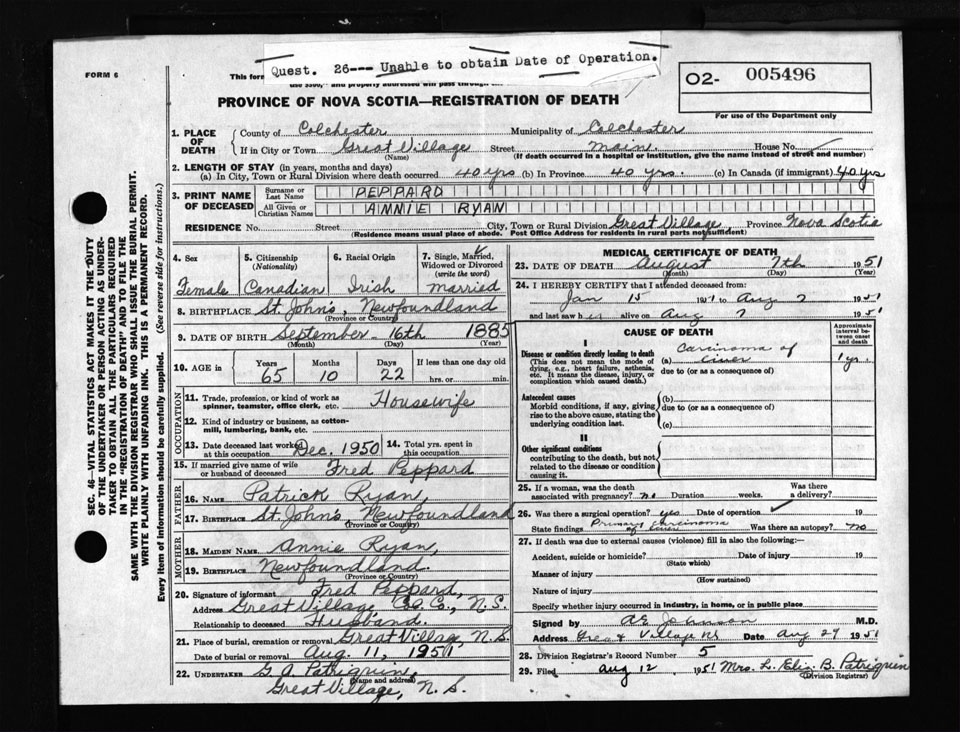 Quest. 26--- Unable to obtain Date of Operation.
FORM 6
This form
O2- 005496
For use of the Department only
PROVINCE OF NOVA SCOTIA—REGISTRATION OF DEATH
1. PLACE OF DEATH
County of Colchester Municipality of Colchester
If in City or Town Great Village Street Main House No.
(Name) (If death occurred in a hospital or institution, give the name instead of street and number)
2. LENGTH OF STAY (in years, months and days)
(a) In City, Town or Rural Division where death occurred 40 yrs (b) In Province 40 yrs. (c) In Canada (if immigrant) 40 yrs
3. PRINT NAME OF DECEASED
Surname or Last Name PEPPARD
All Given or Christian Names ANNIE RYAN
RESIDENCE No. Street City, Town or Rural Division Great Village Province Nova Scotia
(Residence means usual place of abode. Post Office Address for residents in rural parts not sufficient)
4. Sex Female
5. Citizenship (Nationality) Canadian
6. Racial Origin Irish
7. Single, Married, Widowed or Divorced (write the word) married
8. BIRTHPLACE St. John's, Newfoundland
(Province or Country)
9. DATE OF BIRTH September 16th 1885
(Month) (Day) (Year)
10. AGE in Years 65 Months 10 Days 22 If less than one day old hrs. or min.
OCCUPATION
11. Trade, profession, or kind of work as spinner, teamster, office clerk, etc. Housewife
12. Kind of industry or business, as cotton-mill, lumbering, bank, etc.
13. Date deceased last worked at this occupation Dec. 1950 14. Total yrs. spent in this occupation
15. If married give name of wife or husband of deceased Fred Peppard
FATHER
16. NAME Patrick Ryan,
17. BIRTHPLACE St. John's Newfoundland
(Province or Country)
MOTHER
18. MAIDEN NAME Annie Ryan,
19. BIRTHPLACE Newfoundland.
(Province or Country)
20. Signature of informant Fred Peppard,
Address Great Village, Col. Co., N. S.
Relationship to deceased Husband.
21. Place of burial, cremation or removal Great Village, N. S.
Date of burial or removal Aug. 11, 1951,
22. UNDERTAKER G. A. Patriquin
(Name and address)
Great Village, N. S.
MEDICAL CERTIFICATE OF DEATH
23. DATE OF DEATH August 7th 1951
(Month) (Day) (Year)
24. I HEREBY CERTIFY that I attended deceased from:
Jan 15 1951 to Aug 7 1951
and last saw her alive on Aug 7 1951
CAUSE OF DEATH
Approximate interval between onset and death
I
Disease or condition directly leading to death
(This does not mean the mode of dying, e.g., heart failure, asthenia, etc. It means the disease, injury, or complication which caused death.)
(a) Carcinoma of liver 1 yr.
due to (or as a consequence of)
Antecedent causes
Morbid conditions, if any, giving rise to the above cause, stating the underlying condition last.
(b)
due to (or as a consequence of)
(c)
II
Other significant conditions
contributing to the death, but not related to the disease or condition causing it.
25. If a woman, was the death associated with pregnancy? no Duration weeks. Was there a delivery?
26. Was there a surgical operation? yes Date of operation 19
State findings Primary carcinoma of liver Was there an autopsy? no
27. If death was due to external causes (violence) fill in also the following:—
Accident, suicide or homicide? Date of injury 19
(State which)
Manner of injury
(How sustained)
Nature of injury
Specify whether injury occurred in industry, in home, or in public place
Signed by A E Johnson M.D.
Address Great Village NS Date Aug 29 1951
28. Division Registrar's Record Number 5
29. Filed Aug 12 1951 Mrs. L. Eliz. B. Patriquin
(Division Registrar)
SEC. 46—VITAL STATISTICS ACT MAKES IT THE DUTY
OF THE UNDERTAKER OR PERSON ACTING AS UNDER-
TAKER TO OBTAIN ALL THE PARTICULARS REQUIRED
IN THE "REGISTRATION OF DEATH" AND TO FILE THE
SAME WITH THE DIVISION REGISTRAR WHO SHALL ISSUE THE BURIAL PERMIT.
WRITE PLAINLY WITH UNFADING INK. THIS IS A PERMANENT RECORD.
Every item of information should be carefully supplied. (See reverse side for instructions.)